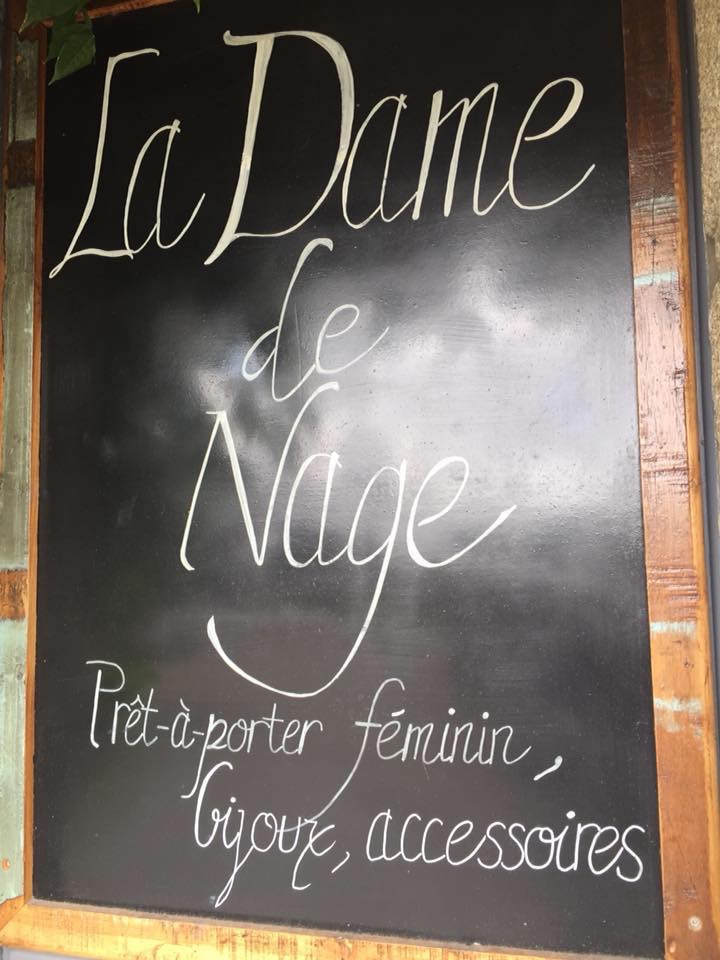 La Dame
de
Nage
Prêt-à-porter féminin,
bijoux, accessoires